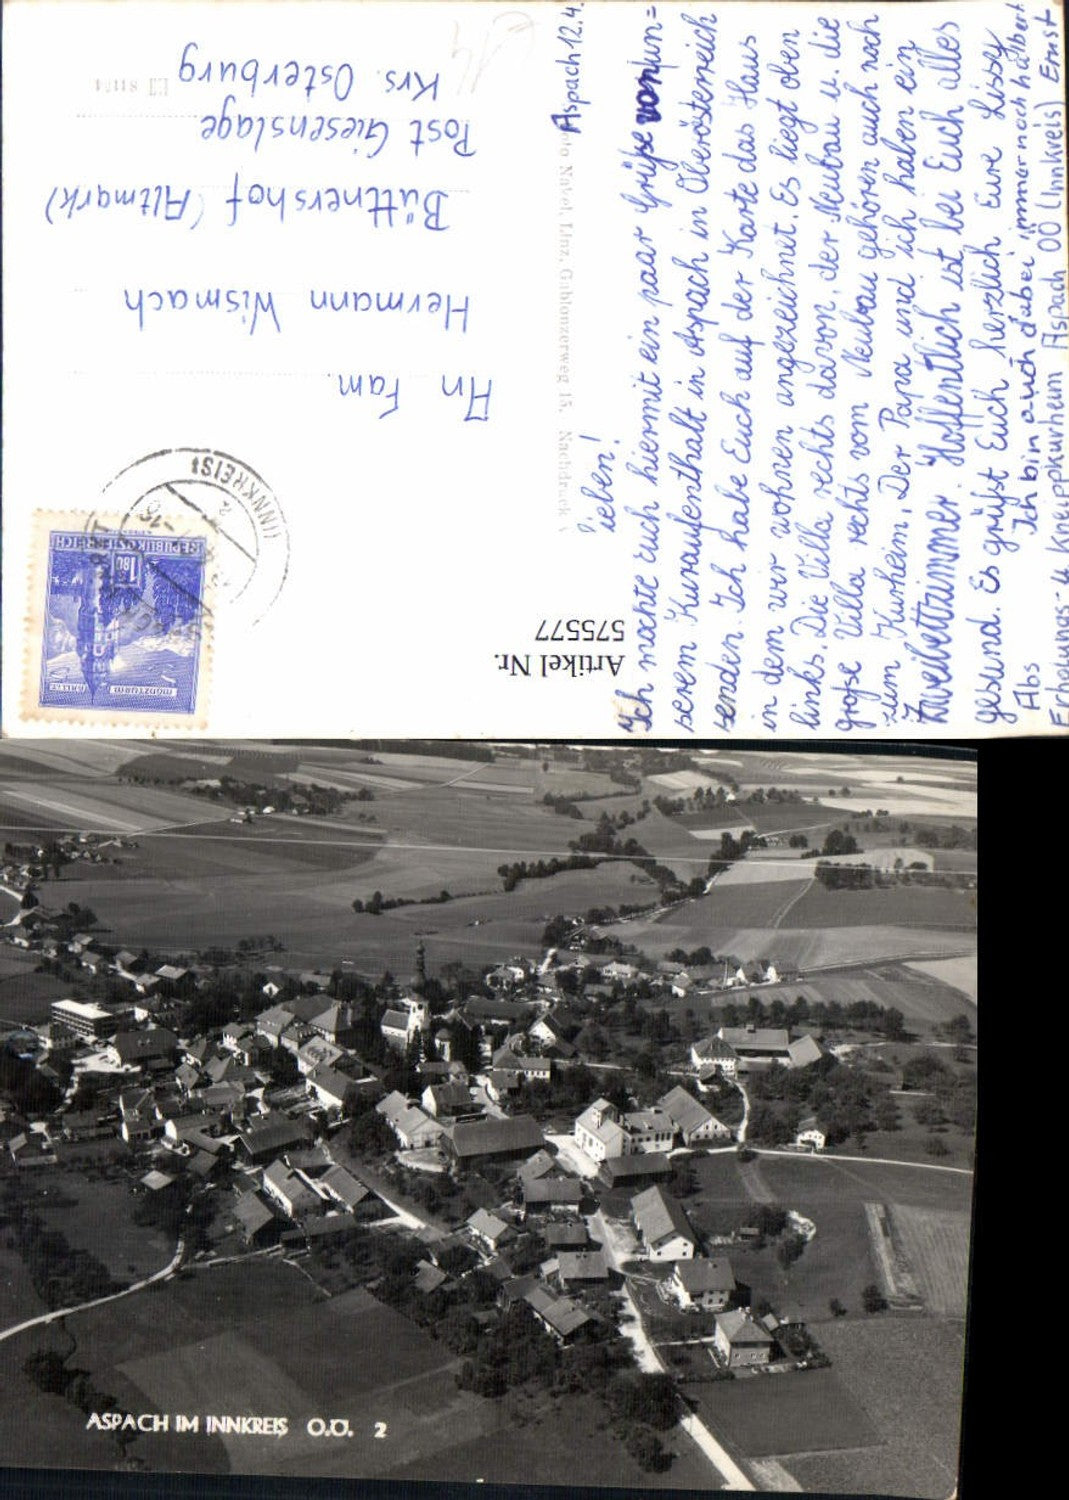 Aspach 12.4.
lieben!
Ich möchte Euch hiermit ein paar Grüße von un=
serem Kuraufenthalt in Aspach in Oberösterreich
senden. Ich habe Euch auf der Karte das Haus
in dem wir wohnen angezeichnet. Es liegt oben
links. Die Villa rechts davon, der Neubau u. die
große Villa rechts vom Neubau gehören auch noch
zum Kurheim. Der Papa und ich haben ein
Zweibettzimmer. Hoffentlich ist bei Euch alles
gesund. Es grüßt Euch herzlich Eure Lissy
Ich bin auch dabei immer noch halber
Abs
Erholungs- u Kneippkurheim Aspach OÖ (Innkreis) Ernst
Foto Nabel, Linz, Gablonzerweg 15. Nachdruck
An Fam
Hermann Wismach
Büttnershof (Altmark)
Post Giesenslage
Krs. Osterburg
REPUBLIK ÖSTERREICH
1.80
MÜNZTURM
HALL I.T.
(INNKREIS)
Artikel Nr.
575577
ASPACH IM INNKREIS O.Ö. 2